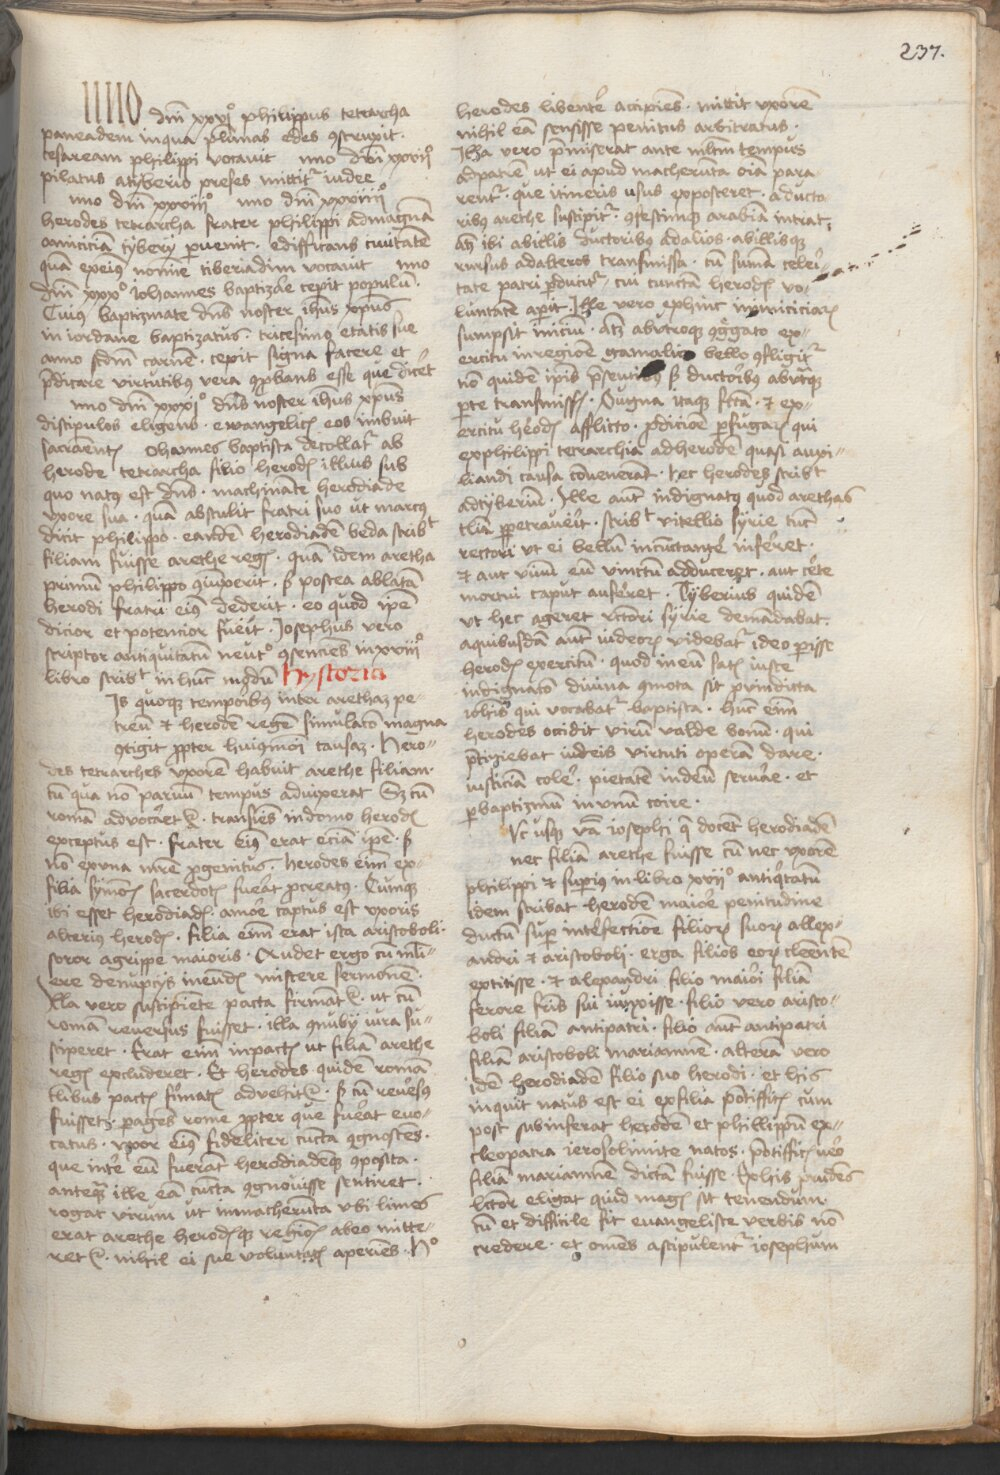 237.
nno dnī xxvjº philippus tetrarcha
paneadem in qua plimas edes 9struxit ·
cesaream philippi vocauit nno dnī xxvijº
pilatus a tyberio preses mittitr iudee
nno dnī xxviijº nno dnī xxviiijº
herodes tetrarcha frater philippi ad magnā
amiciciā tyberij puenit · edifficans ciuitatē
quā ex eius nomīe tiberiadim vocauit nno
dnī xxxº Iohannes baptizāe cepit populū ·
Cuius baptizmate dns noster ihus xpus
in iordane baptizatus · tricesimo etatis sue
anno scdm carnē · cepit signa facere et
pdicare virtutibus vera 9pbans esse que dicet
nno dnī xxxjº dns noster ihus xpus
discipulos eligens · ewangelicis eos imbuit
sacramentis ohannes baptista decollatr ab
herode tetrarcha filio herodis illius sub
quo natus est dns · machinante herodiade
vxore sua · quā abstulit fratri suo ut marcus
dicit philippo · eandē herodiadē beda scribt
filiam fuisse arethe regis · quā idem aretha
primū philippo 9iuxerit · s postea ablatā
herodi fratri eius dederit · eo quod ipē
dicior et potencior fuēit · Josephus vero
scriptor antiquitatū neutº 9senciēs in xviijº
libro scribt in hūc modū hystoria
Is quoque temporibus inter arethaz pe-
treū et herodē regē simulatio magna
9tigit ppter huiuscmodi causaz · Hero-
des tetrarches vxorē habuit arethe filiam ·
cū qua nō paruū tempus aduixerat Sz cū
romā aduocaret · transiēs in domo herodis
exceptus est · frater eius erat eciā ipe · s
nō ex vna mrē pgenitus · herodes eim ex
filia symonis sacerdotis fuēat pcreatus · Cumque
ibi esset herodiadis amōe captus est vxoris
alterius herodis · filia eim erat ista aristoboli ·
soror agrippe maioris · Audet ergo cū muli-
ere de nupcijs ineundis miscere sermonē ·
Illa vero suscipiente pacta firmātr · ut cū
romā reuersus fuisset · illa 9nubij iura su-
sciperet · Erat eim in pactis ut filiā arethe
regis excluderet · Et herodes quidē romā
talibus pactis firmatis aduehitr · s cū reuersus
fuisset · pagens rome ppter que fuerat euo-
catus · vxor eius fideliter cūcta 9gnoscēs ·
que inter eū fuerāt herodiadēque 9posita ·
antequam ille eā cūcta 9gnouisse sentiret ·
rogat virum ut in macherūta vbi limes
erat arethe herodisque regionis ab eo mitte-
retr · nihil ei sue voluntatis aperiēs · Hº
herodes libenter accipiēs · mittit vxorē
nihil eā sensisse penitus arbitratus ·
Illa vero pmiserat ante multm tempus
ad patrē ut ei apud macherūta oīa para
rentr · que itineris usus exposceret · a ducto-
ribus arethe suscipitr · 9festimque arabiā intrat ;
atz ibi ab illis ductoribus ad alios · ab illisque
rursus ad alteros transmissa · cū sumā celeri-
tate patri pducitr · cui cunctā herodis vo-
luntatē apit · Ille vero ex hinc inimiciciaz
sumpsit iniciū · atz ab vtroque 9gregato ex-
ercitu in regionē gamalica bello 9fligitr
nō quidē ipis psentibus s ductoribus ab utraque
pte transmissis · Pugna itaque fcta · et ex-
ercitu herodis afflicto · pdicione pfugaz qui
ex philippi tetrarchia ad herodē quasi auxi-
liandi causa cōuenerant · hec herodes scribt
ad tyberiū · Ille aut indignatus quod arethas
talia ppetrauerit · scribt vitellio syrie tūc
rectori vt ei bellū incūctanter inferret ·
et aut viuū eū vinctū adduceret · aut certe
mortui caput auferret · Tyberius quidē
vt hec ageret rectori syrie demādabat ·
a quibusdā aut iudeoz videbatr ideo pisse
herodis exercitū · quod in eū satis iuste
indignatio diuina 9mota sit p vindicta
iohīs qui vocabatr baptista · hūc eim
herodes occidit virū valde bonū · qui
pcipiebat iudeis virtuti operā dare ·
iusticiā colere · pietatē in deū seruare · et
p baptizmū in vnū coire ·
Uc usque vba iosephi que docēt herodiadē
nec filiā arethe fuisse cū nec vxorē
philippi et supius in libro xvijº antiquitatū
idem scribat herodē maiorē penitudine
ductū sup interfectione filioz suoz allex-
andri et aristoboli · erga filios eoz clementē
extitisse · et alexandri filio maiori filiā
ferore fris sui iunxisse · filio vero aristo-
boli filiā antipatri · filio aut antipatri
filiā aristoboli mariamnē · alterā vero
idē herodiadē filio suo herodi · et his
inquit natus est ei ex filia pontifficis cum
post subinferat herodē et phillippū ex
cleopatra ierosolimite natos · pontifficis vero
filiā mariamne dictā fuisse · Ex his prudēs
lector eligat quid magis sit tenendum ·
cū et difficile sit euangeliste verbis nō
credere · et omēs astipulentr iosephum